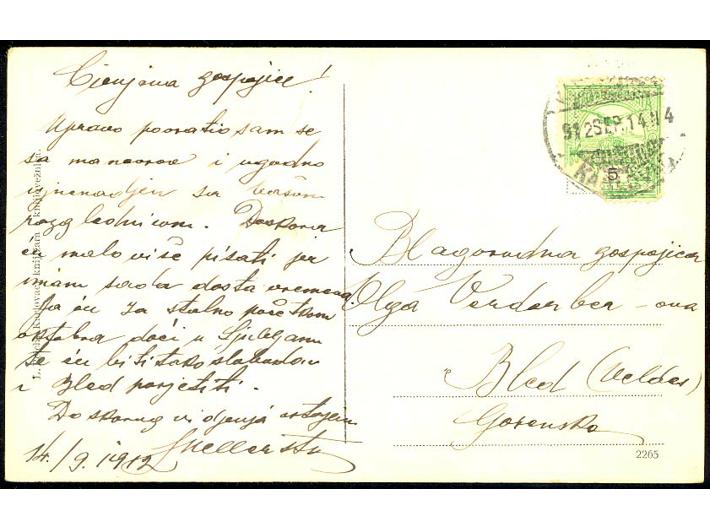 Cijenjena gospojice!
Upravo povratio sam se
sa manevra i ugodno
iznenadjen sa Vašom
razglednicom. Doskora
ću malo više pisati jer
imam sada dosta vremena.
Ja ću za stalno početkom
oktobra doći u Ljubljanu
te ću biti tako slobodan
i Bled posjetiti.
Do skorog vidjenja ostajem
14./9. 1912
Blagorodna gospojica
Olga Verderber-ova
Bled (Veldes)
Gorensko
912 SEP. 14
5
2265